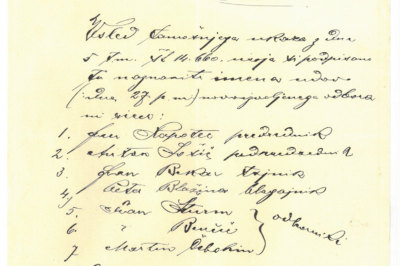 Vsled tamošnjega ukaza z dne
5 t.m. št 14.660. usoja si podpisani
Tu naznaniti imena udov
(dne 27. p. m) novoizvoljenega odbora
in sicer:
1. predsednik
2. Anton podpredsednik
3. Ivan tajnik
4. blagajnik
5. Ivan Sturm
6. " Benčič
7. Martin
odborniki